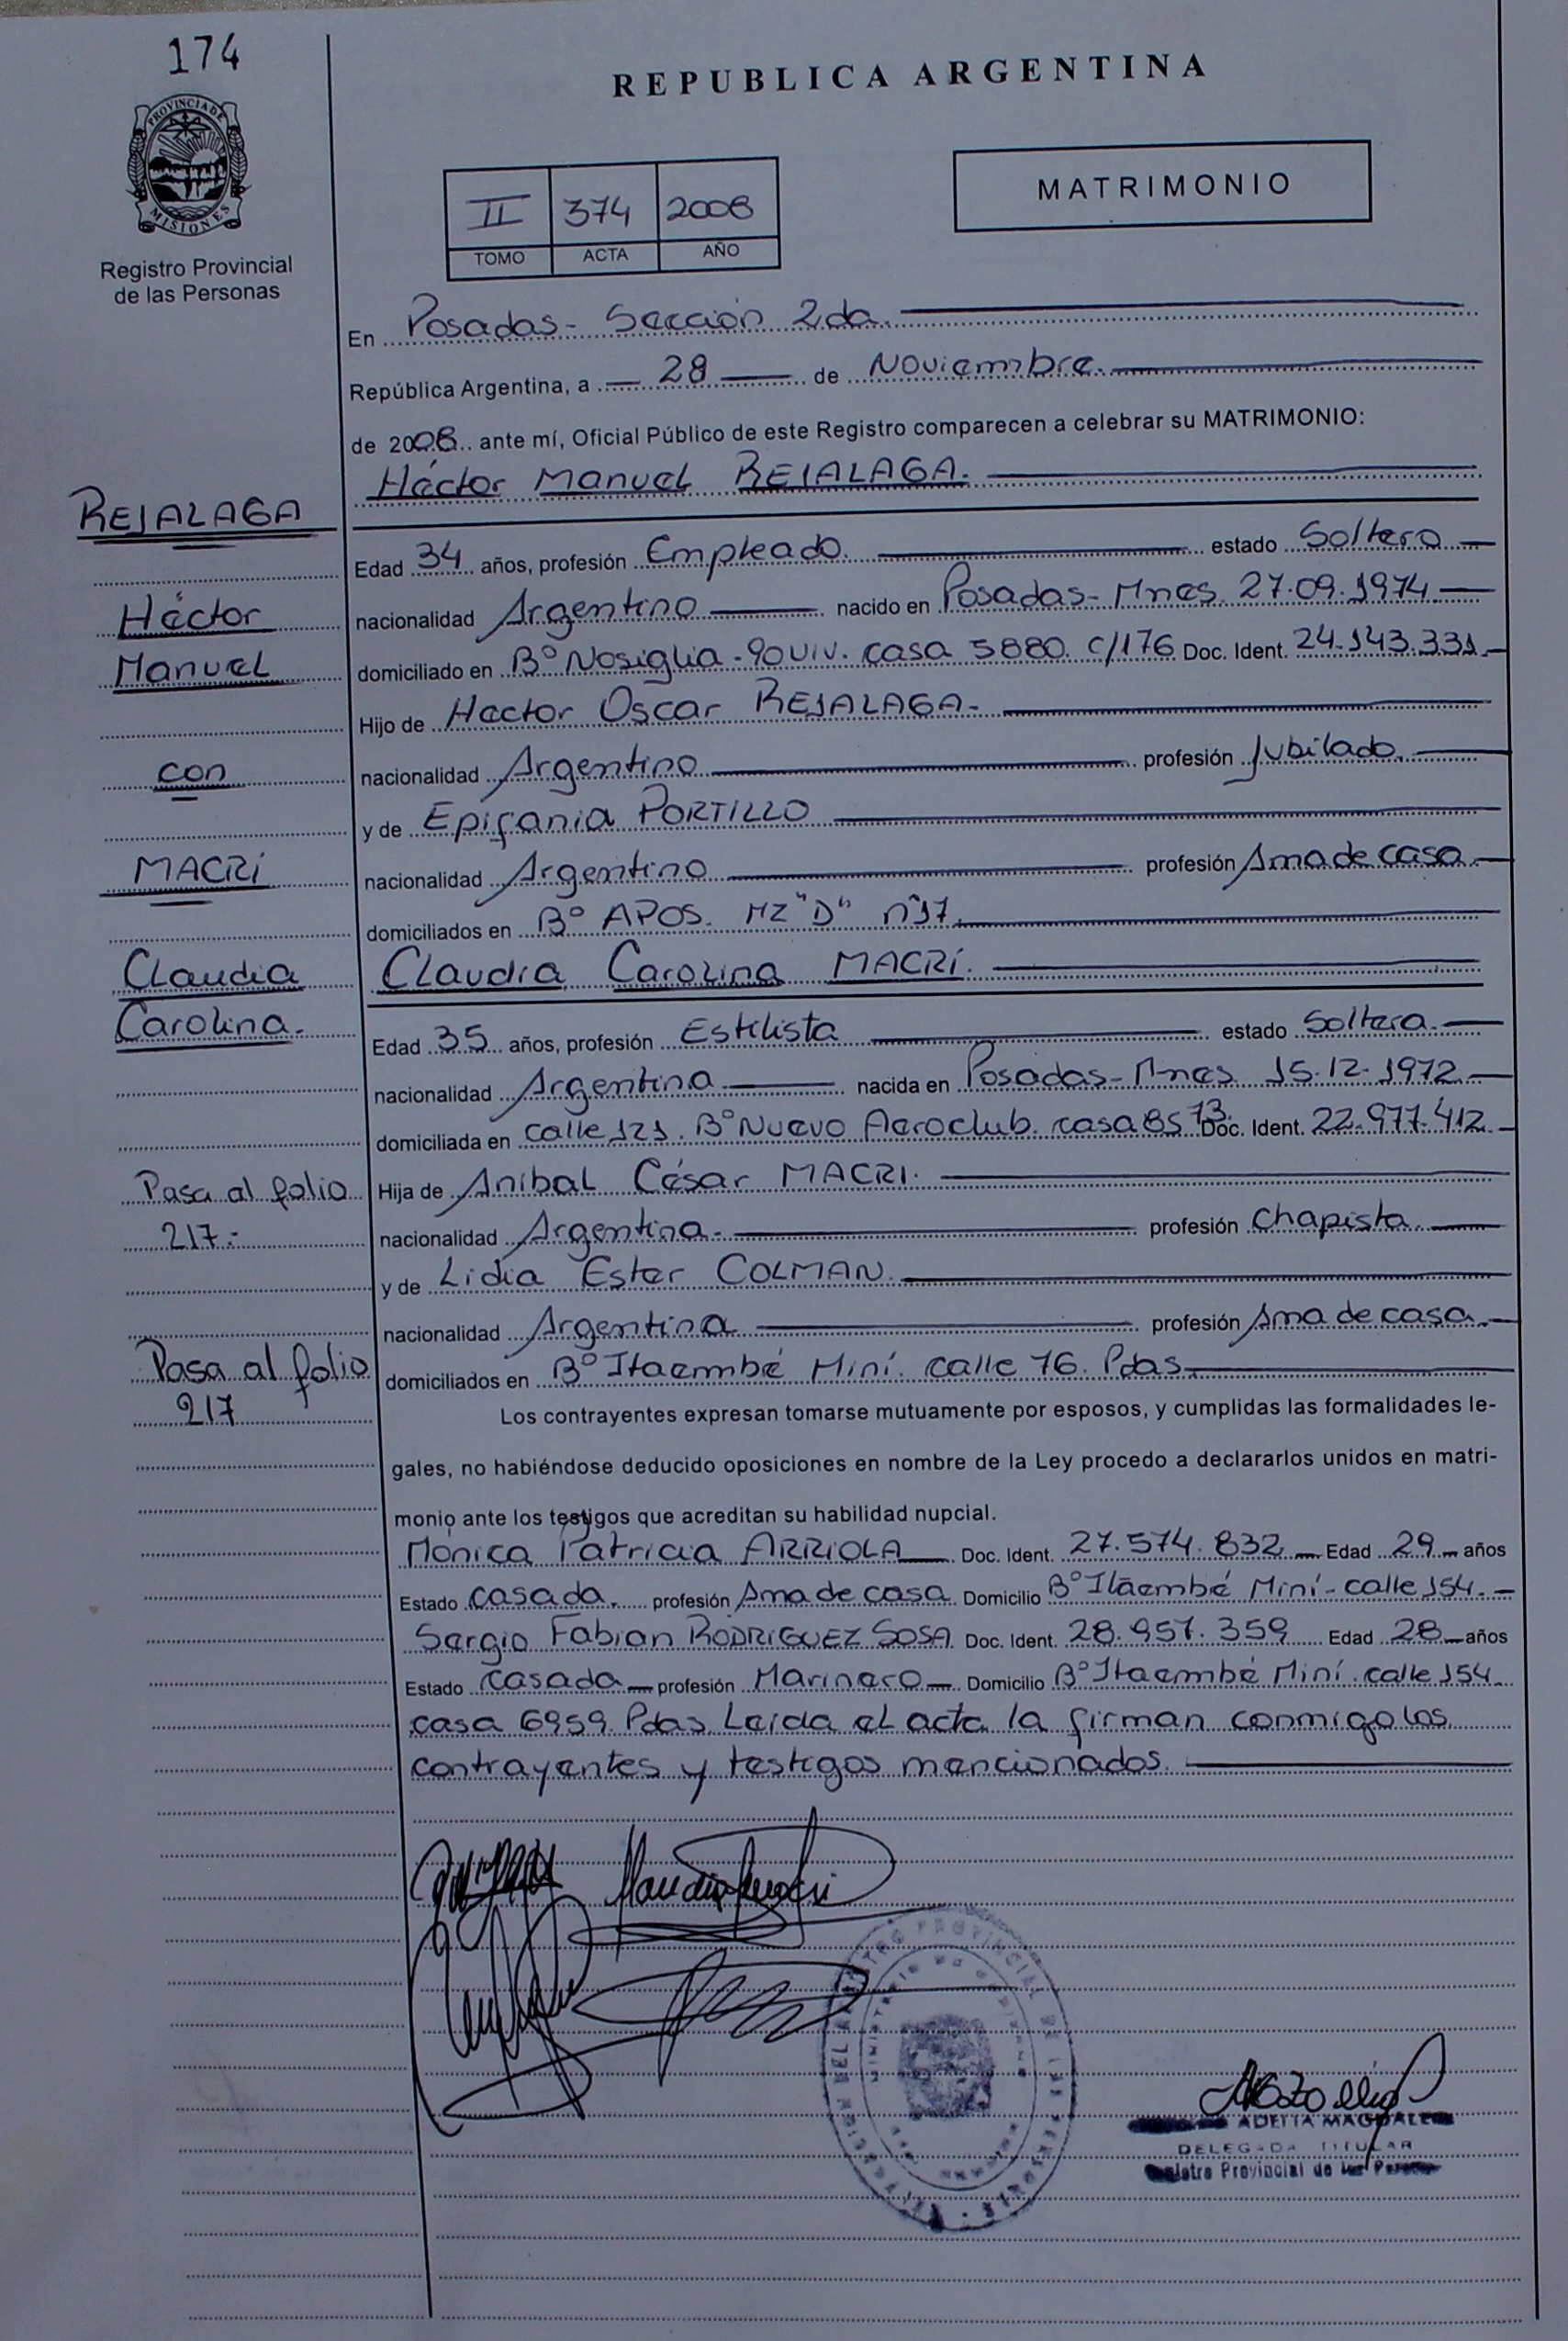 174
REPUBLICA ARGENTINA
PROVINCIA DE
MISIONES
Registro Provincial
de las Personas
II 374 2008
TOMO ACTA AÑO
MATRIMONIO
En Posadas - Sección 2da.
República Argentina, a 28 de Noviembre.
de 2008 ante mí, Oficial Público de este Registro comparecen a celebrar su MATRIMONIO:
Héctor Manuel REJALAGA.
REJALAGA
Edad 34 años, profesión Empleado. estado Soltero
Héctor
nacionalidad Argentino nacido en Posadas - Mnes. 27.09.1974
Manuel
domiciliado en B° Nosiglia - 90 viv. casa 5880. c/176 Doc. Ident. 24.143.331
Hijo de Hector Oscar REJALAGA.
con
nacionalidad Argentino profesión Jubilado.
y de Epifania PORTILLO
MACRI
nacionalidad Argentino profesión Ama de casa
domiciliados en B° APOS. MZ "D" n°17.
Claudia
Claudia Carolina MACRI.
Carolina.
Edad 35 años, profesión Estilista estado Soltera.
nacionalidad Argentina nacida en Posadas - Mnes 15.12.1972
domiciliada en calle 121. B° Nuevo Aeroclub. casa 8573. Doc. Ident. 22.977.412
Pasa al folio
217.-
Hija de Anibal César MACRI.
nacionalidad Argentina. profesión Chapista
y de Lidia Ester COLMAN.
nacionalidad Argentina profesión Ama de casa.
Pasa al folio
217
domiciliados en B° Itaembé Miní. calle 76. Pdas.
Los contrayentes expresan tomarse mutuamente por esposos, y cumplidas las formalidades le-
gales, no habiéndose deducido oposiciones en nombre de la Ley procedo a declararlos unidos en matri-
monio ante los testigos que acreditan su habilidad nupcial.
Mónica Patricia ARRIOLA Doc. Ident. 27.574.832 Edad 29 años
Estado casada. profesión Ama de casa Domicilio B° Itaembé Miní - calle 154.
Sergio Fabian RODRIGUEZ SOSA Doc. Ident. 28.957.359 Edad 28 años
Estado casada profesión Marinero Domicilio B° Itaembé Miní. calle 154
casa 6959. Pdas. Leída el acta la firman conmigo los
contrayentes y testigos mencionados.
REGISTRO PROVINCIAL DE LAS PERSONAS
ADELIA MAGDALENA
DELEGADA TITULAR
Registro Provincial de las Personas